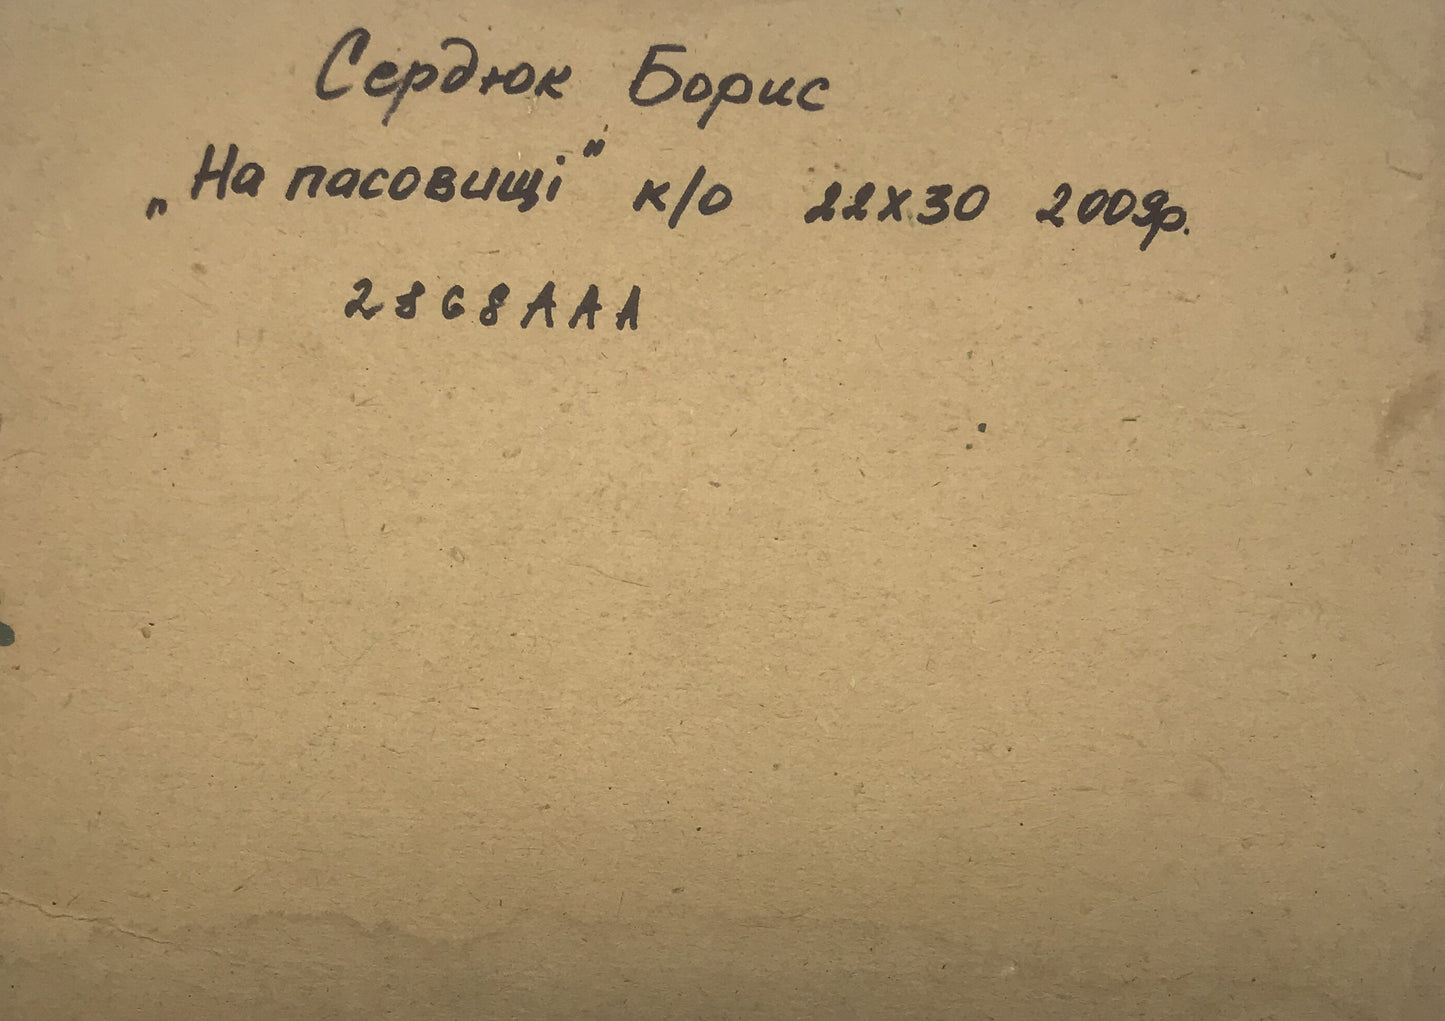 Сердюк Борис
„На пасовищі" к/о 22х30 2009р.
2868ААА